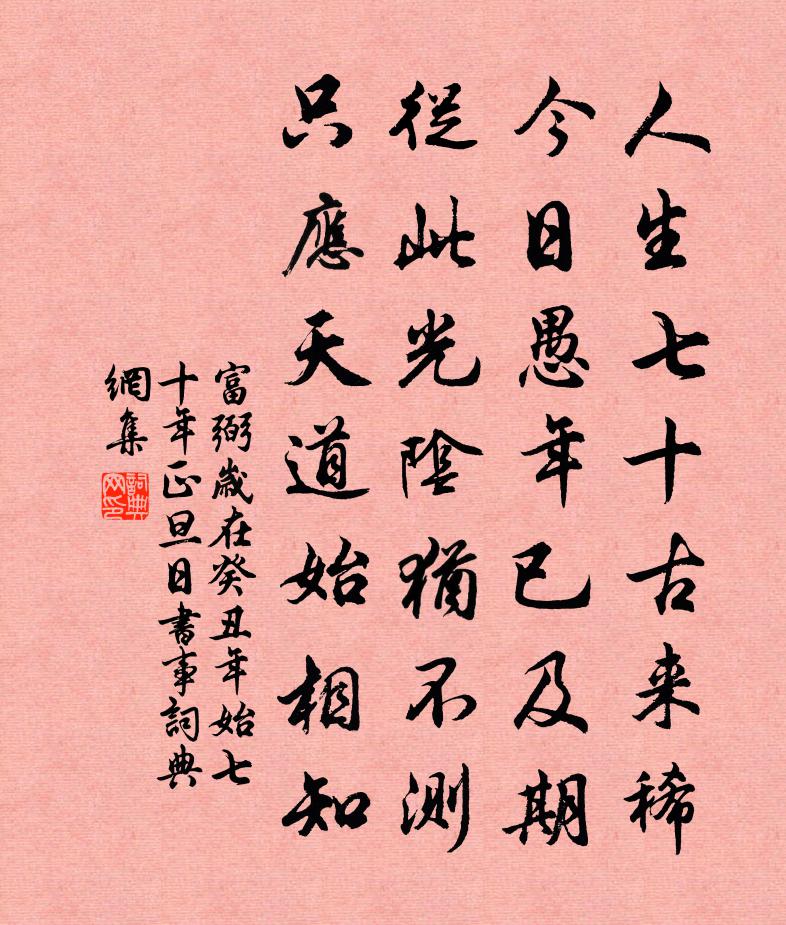 人生七十古来稀
今日愚年已及期
從此光陰猶不測
只應天道始相知
富弼歲在癸丑年始七
十年正旦日書事詞典
網集
詞典
网印